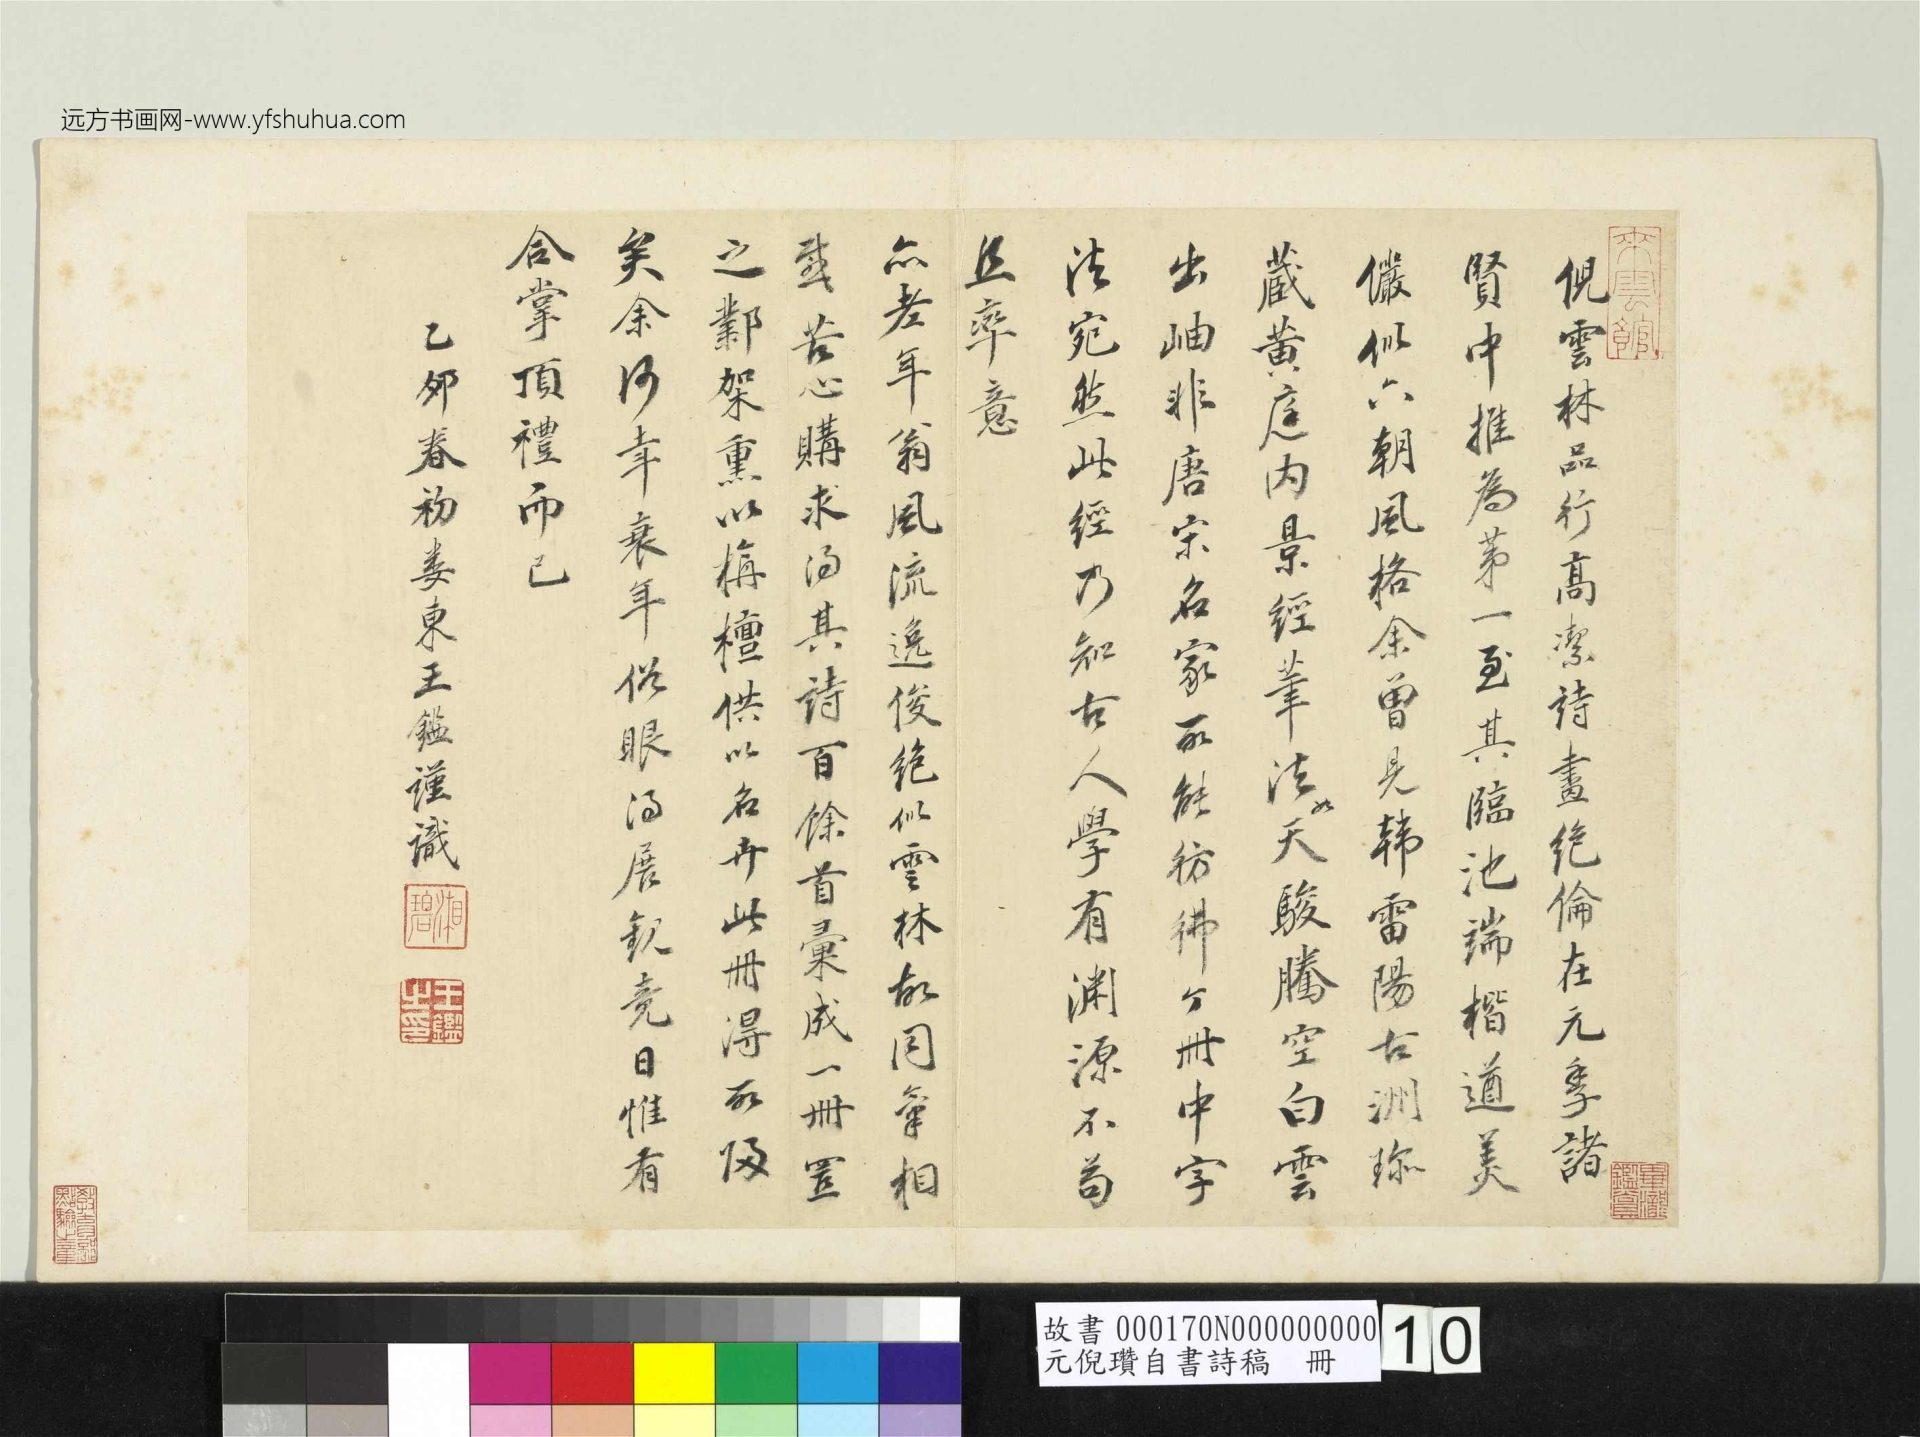 远方书画网-www.yfshuhua.com
倪雲林品行高潔詩畫絕倫在元季諸
賢中推為第一至其臨池端楷遒美
儼似六朝風格余曾見韓雷陽古洲珎
藏黄庭内景經筆法如天駿騰空白雲
出岫非唐宋名家所能彷彿今冊中字
法宛然此經乃知古人學有淵源不苟
且率意
年翁風流逸俊絕似雲林故同氣相
苦心購求得其詩百餘首彙成一冊置
之鄴架熏以栴檀供以名卉此冊得所歸
矣余何幸衰年俗眼得展觀竟日惟有
合掌頂禮而已
乙卯春初婁東王鑑謹識
湘碧
王鑑之印
來雲館
故書 000170N000000000 10
元倪瓚自書詩稿 冊